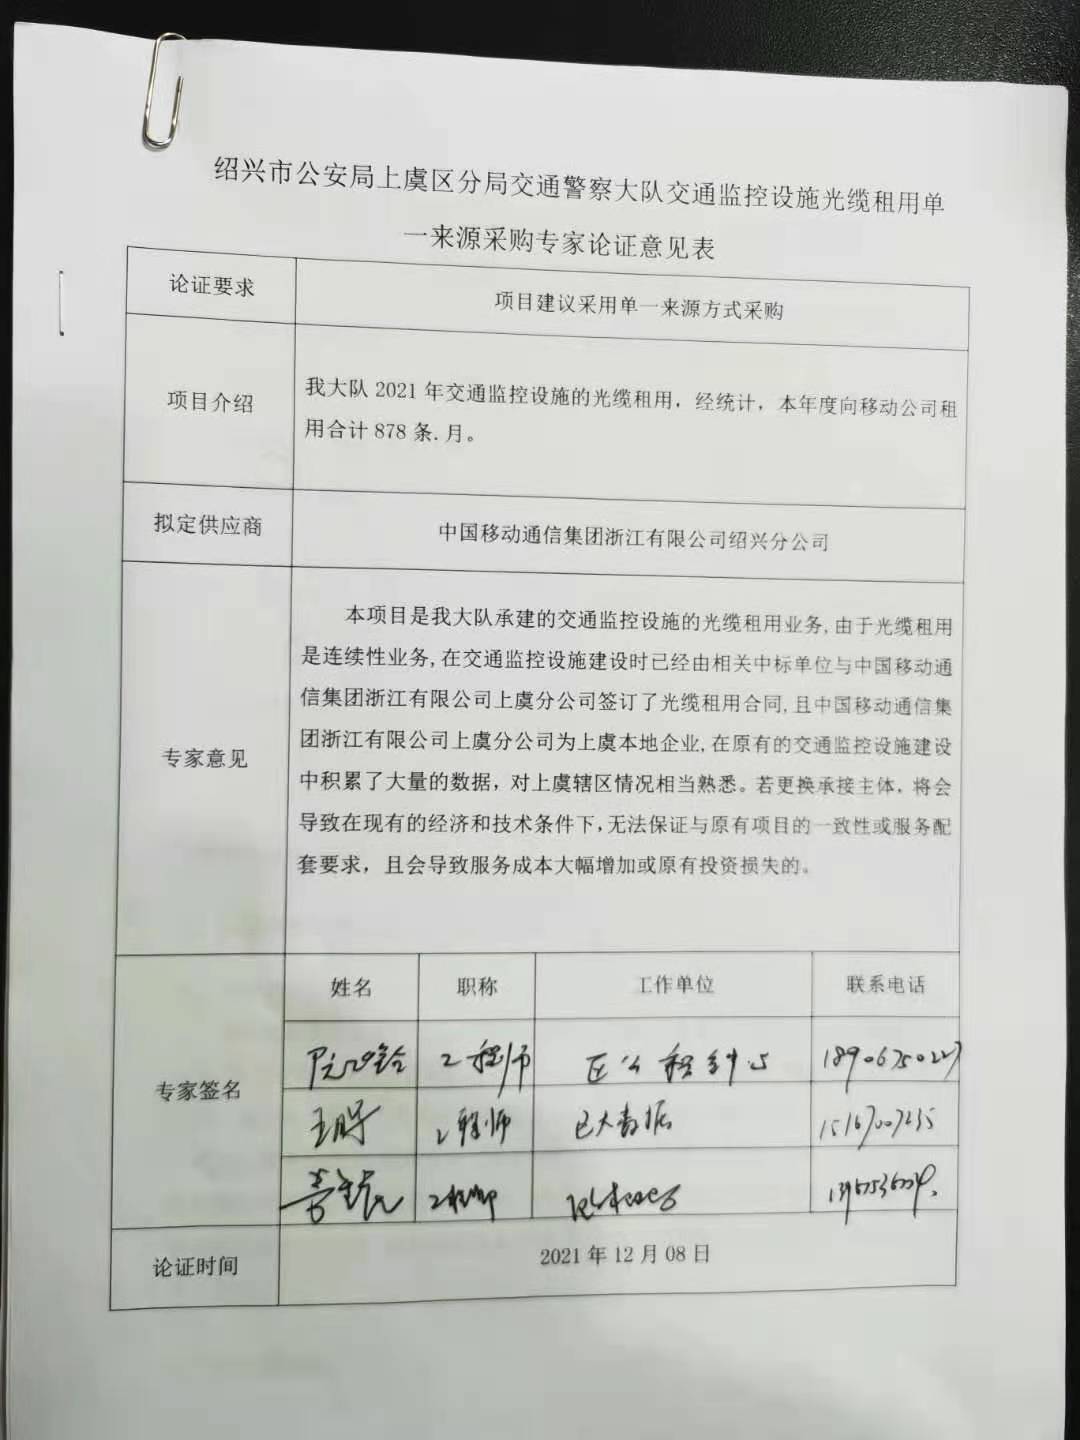 绍兴市公安局上虞区分局交通警察大队交通监控设施光缆租用单
一来源采购专家论证意见表
论证要求
项目建议采用单一来源方式采购
项目介绍
我大队 2021 年交通监控设施的光缆租用，经统计，本年度向移动公司租
用合计 878 条.月。
拟定供应商
中国移动通信集团浙江有限公司绍兴分公司
专家意见
本项目是我大队承建的交通监控设施的光缆租用业务,由于光缆租用
是连续性业务,在交通监控设施建设时已经由相关中标单位与中国移动通
信集团浙江有限公司上虞分公司签订了光缆租用合同,且中国移动通信集
团浙江有限公司上虞分公司为上虞本地企业,在原有的交通监控设施建设
中积累了大量的数据，对上虞辖区情况相当熟悉。若更换承接主体，将会
导致在现有的经济和技术条件下,无法保证与原有项目的一致性或服务配
套要求，且会导致服务成本大幅增加或原有投资损失的。
专家签名
姓名 职称 工作单位 联系电话
工程师
工程师 区大数据 15167007235
工程师
论证时间
2021 年 12 月 08 日